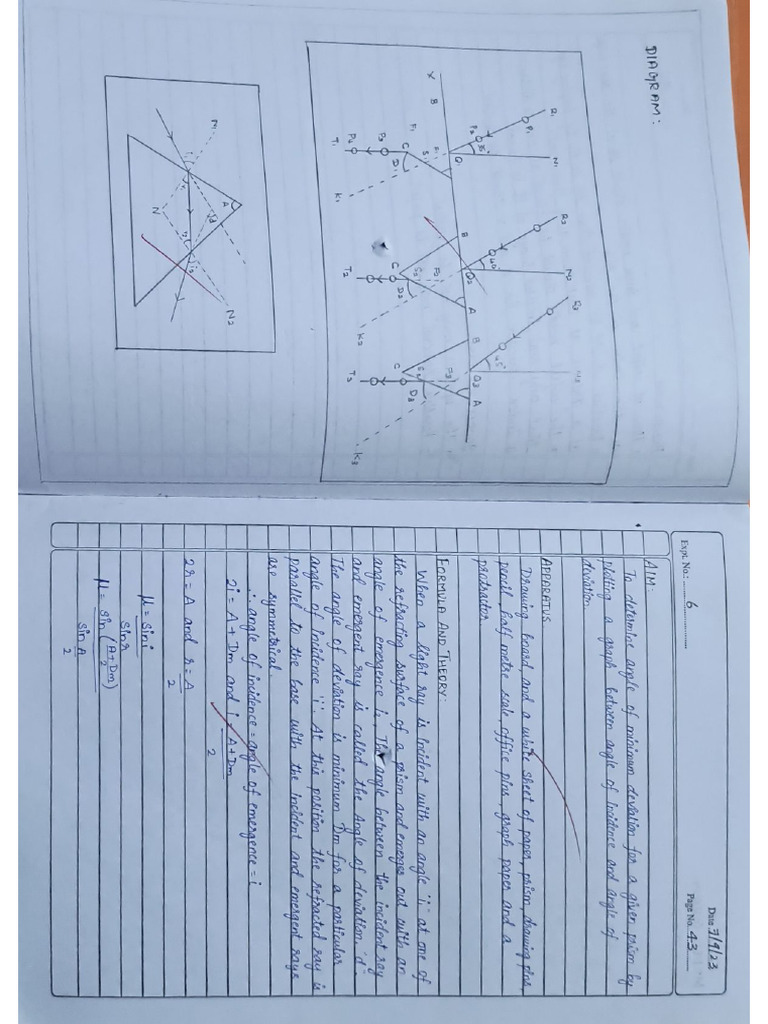 DIAGRAM:
R1
P1
P2
35°
N1
Q1
X
B
E1
S1
F1
C
D1
P3
P4
T1
K1
R2
40°
N2
Q2
B
A
F2
S2
C
D2
T2
K2
S3
45°
N3
Q3
B
A
F3
C
D3
T3
K3
N1
A
i1
r1
N
r2
i2
N2
Expt. No.: 6
Date 7/9/23
Page No. 43
AIM:
To determine angle of minimum deviation for a given prism by
ploting a graph between angle of incidence and angle of
deviation
APPARATUS
Drawing board and a white sheet of paper, prism drawing pins,
pencil, half metre scale, office pins, graph paper and a
protractor.
FORMULA AND THEORY:
When a light ray is incident with an angle 'i' at one of
the refracting surface of a prism and emerges out with an
angle of emergence i2. The angle between the incident ray
and emergent ray is called the angle of deviation 'd'
The angle of deviation is minimum Dm for a particular
angle of incidence 'i'. At this position the refracted ray is
parallel to the base with the incident and emergent rays
are symmetrical.
∴ angle of incidence = angle of emergence = i
2i = A + Dm and i = A + Dm / 2
2r = A and r = A / 2
μ = sin i / sin r
μ = sin (A+Dm / 2) / sin A / 2